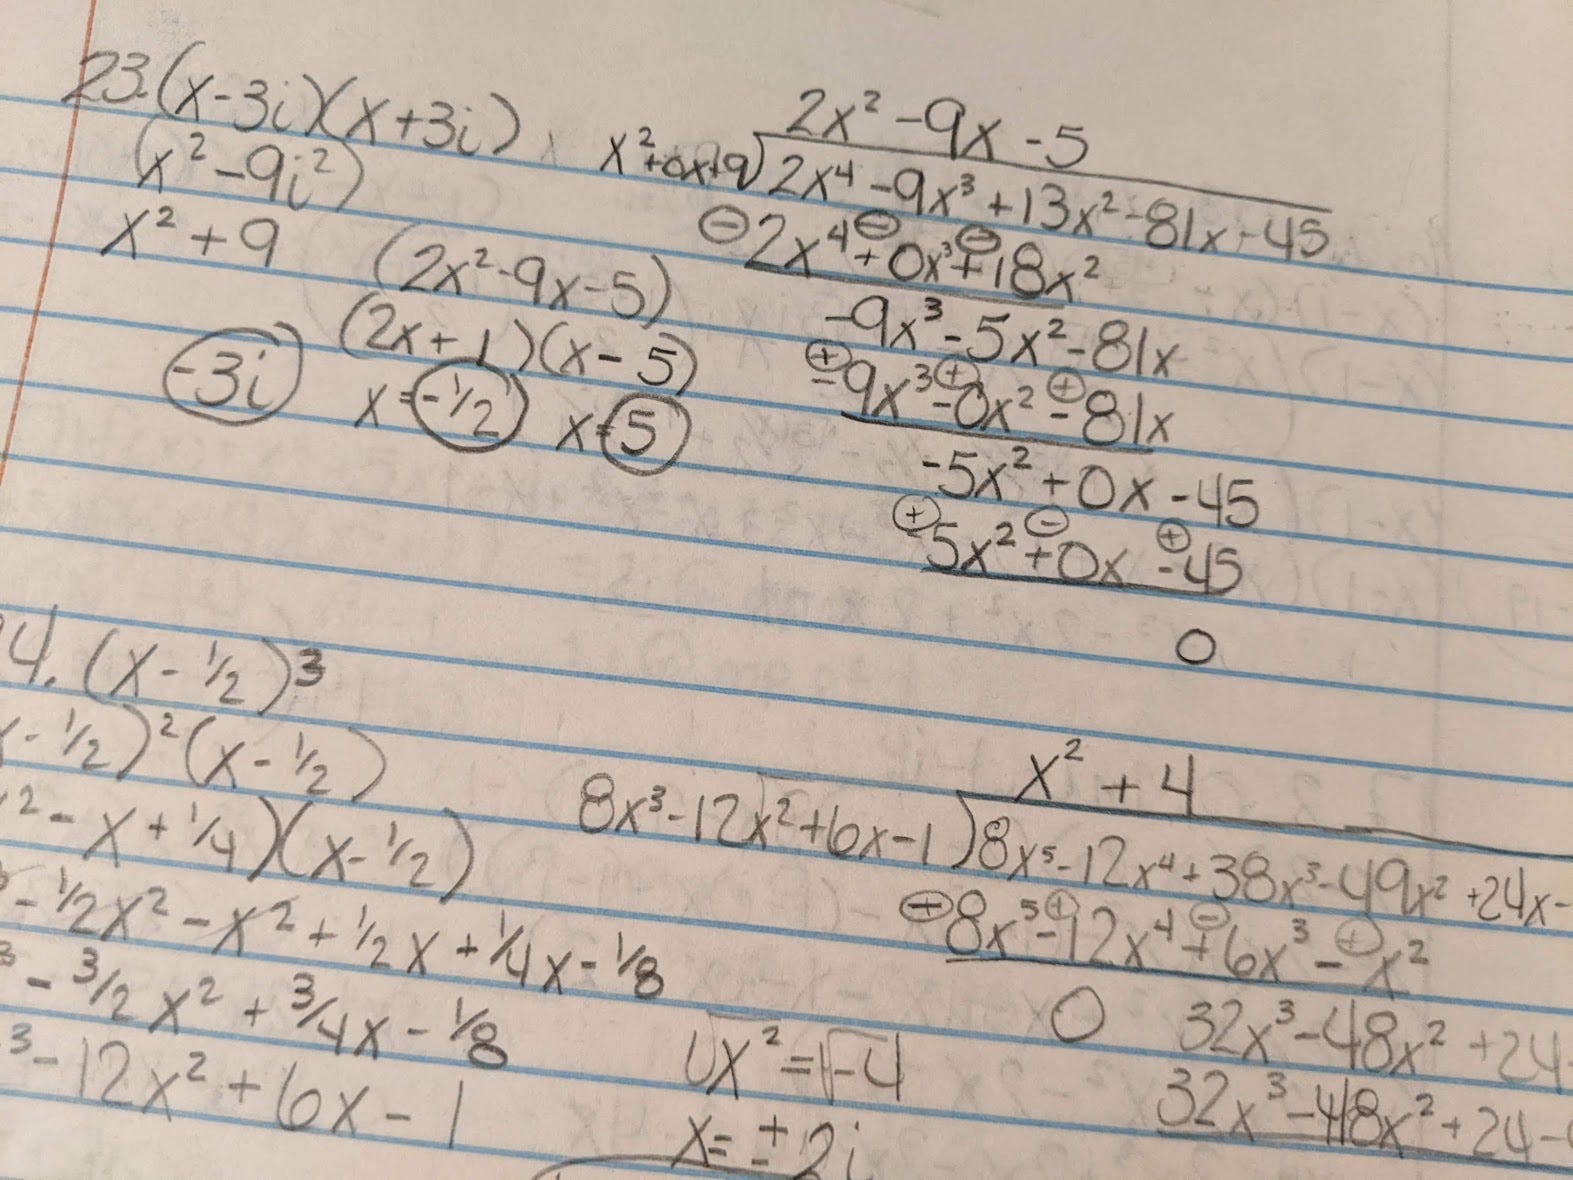 23. (x-3i)(x+3i)
(x²-9i²)
x²+9
2x²-9x-5
x²+0x+9)2x⁴-9x³+13x²-81x-45
⊖2x⁴+⊖0x³+⊖18x²
-9x³-5x²-81x
⊕-9x³-⊕0x²-⊕81x
-5x²+0x-45
⊕-5x²+⊖0x-⊕45
0
(2x²-9x-5)
(2x+1)(x-5)
-3i
x=-1/2
x=5
4. (x-1/2)³
x-1/2)²(x-1/2)
²-x+1/4)(x-1/2)
³-1/2x²-x²+1/2x+1/4x-1/8
³-3/2x²+3/4x-1/8
³-12x²+6x-1
x²+4
8x³-12x²+6x-1)8x⁵-12x⁴+38x³-49x²+24x-
⊖8x⁵-⊕12x⁴+⊖6x³-⊕x²
0 32x³-48x²+24
32x³-48x²+24-
√x²=√-4
x=±2i